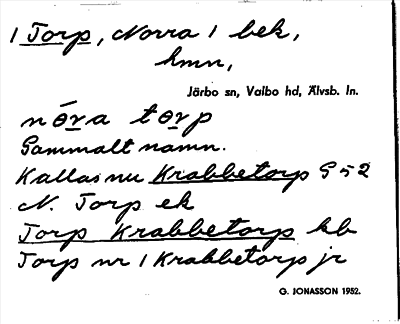 1 Torp, Norra 1 bek,
hmn,
Järbo sn, Valbo hd, Älvsb. ln.
nǿra tørp
Gammalt namn.
Kallas nu Krabbetorp G 52
N. Torp ek
Torp Krabbetorp kb
Torp nr 1 Krabbetorp jr
G. JONASSON 1952.